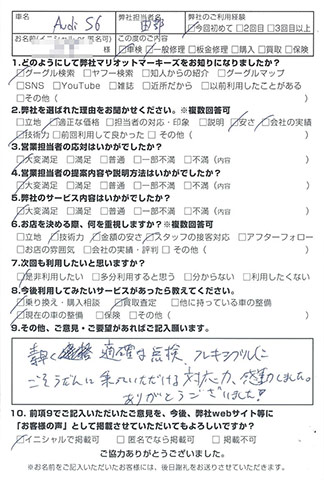 車名 Audi S6 弊社担当者名 田部 弊社のご利用経験
□今回初めて □2回目 □3回目以上
お名前(イニシャル or 匿名可) 様 この度のご内容
□車検 □一般修理 □板金修理 □購入 □買取 □保険
1.どのようにして弊社マリオットマーキーズをお知りになりましたか?
□グーグル検索 □ヤフー検索 □知人からの紹介 □グーグルマップ
□SNS □YouTube □雑誌 □近所だから □以前利用したことがある
□その他( )
2.弊社を選ばれた理由をお聞かせください。※複数回答可
□立地 □適正な価格 □担当者の対応・印象 □説明 □安さ □会社の実績
□技術力 □前回利用して良かった □その他( )
3.営業担当者の応対はいかがでしたか?
□大変満足 □満足 □普通 □一部不満 □不満(内容 )
4.営業担当者の提案内容や説明方法はいかがでしたか?
□大変満足 □満足 □普通 □一部不満 □不満(内容 )
5.弊社のサービス内容はいかがでしたか?
□大変満足 □満足 □普通 □一部不満 □不満(内容 )
6.お店を決める際、何を重視しますか?※複数回答可
□立地 □技術力 □金額の安さ □スタッフの接客対応 □アフターフォロー
□お店の雰囲気 □会社の実績・評判 □その他( )
7.次回も利用したいと思いますか?
□是非利用したい □多分利用すると思う □分からない □利用したくない
8.今後利用してみたいサービスがあったら教えてください。
□乗り換え・購入相談 □買取査定 □他に持っている車の整備
□現在の車の整備 □保険 □その他( )
9.その他、ご意見・ご要望があればご記入願います。
適確な点検、フレキシブルに
ごそうだんに乗っていただける対応力、感動しました。
ありがとうございました!
10.前項9でご記入いただいたご意見を、今後、弊社webサイト等に
「お客様の声」として掲載させていただいてもよろしいですか?
□イニシャルで掲載可 □匿名でなら掲載可 □掲載不可
ご協力ありがとうございました。
※お名前をご記入いただいたお客様には、後日謝礼をお送りさせていただきます。